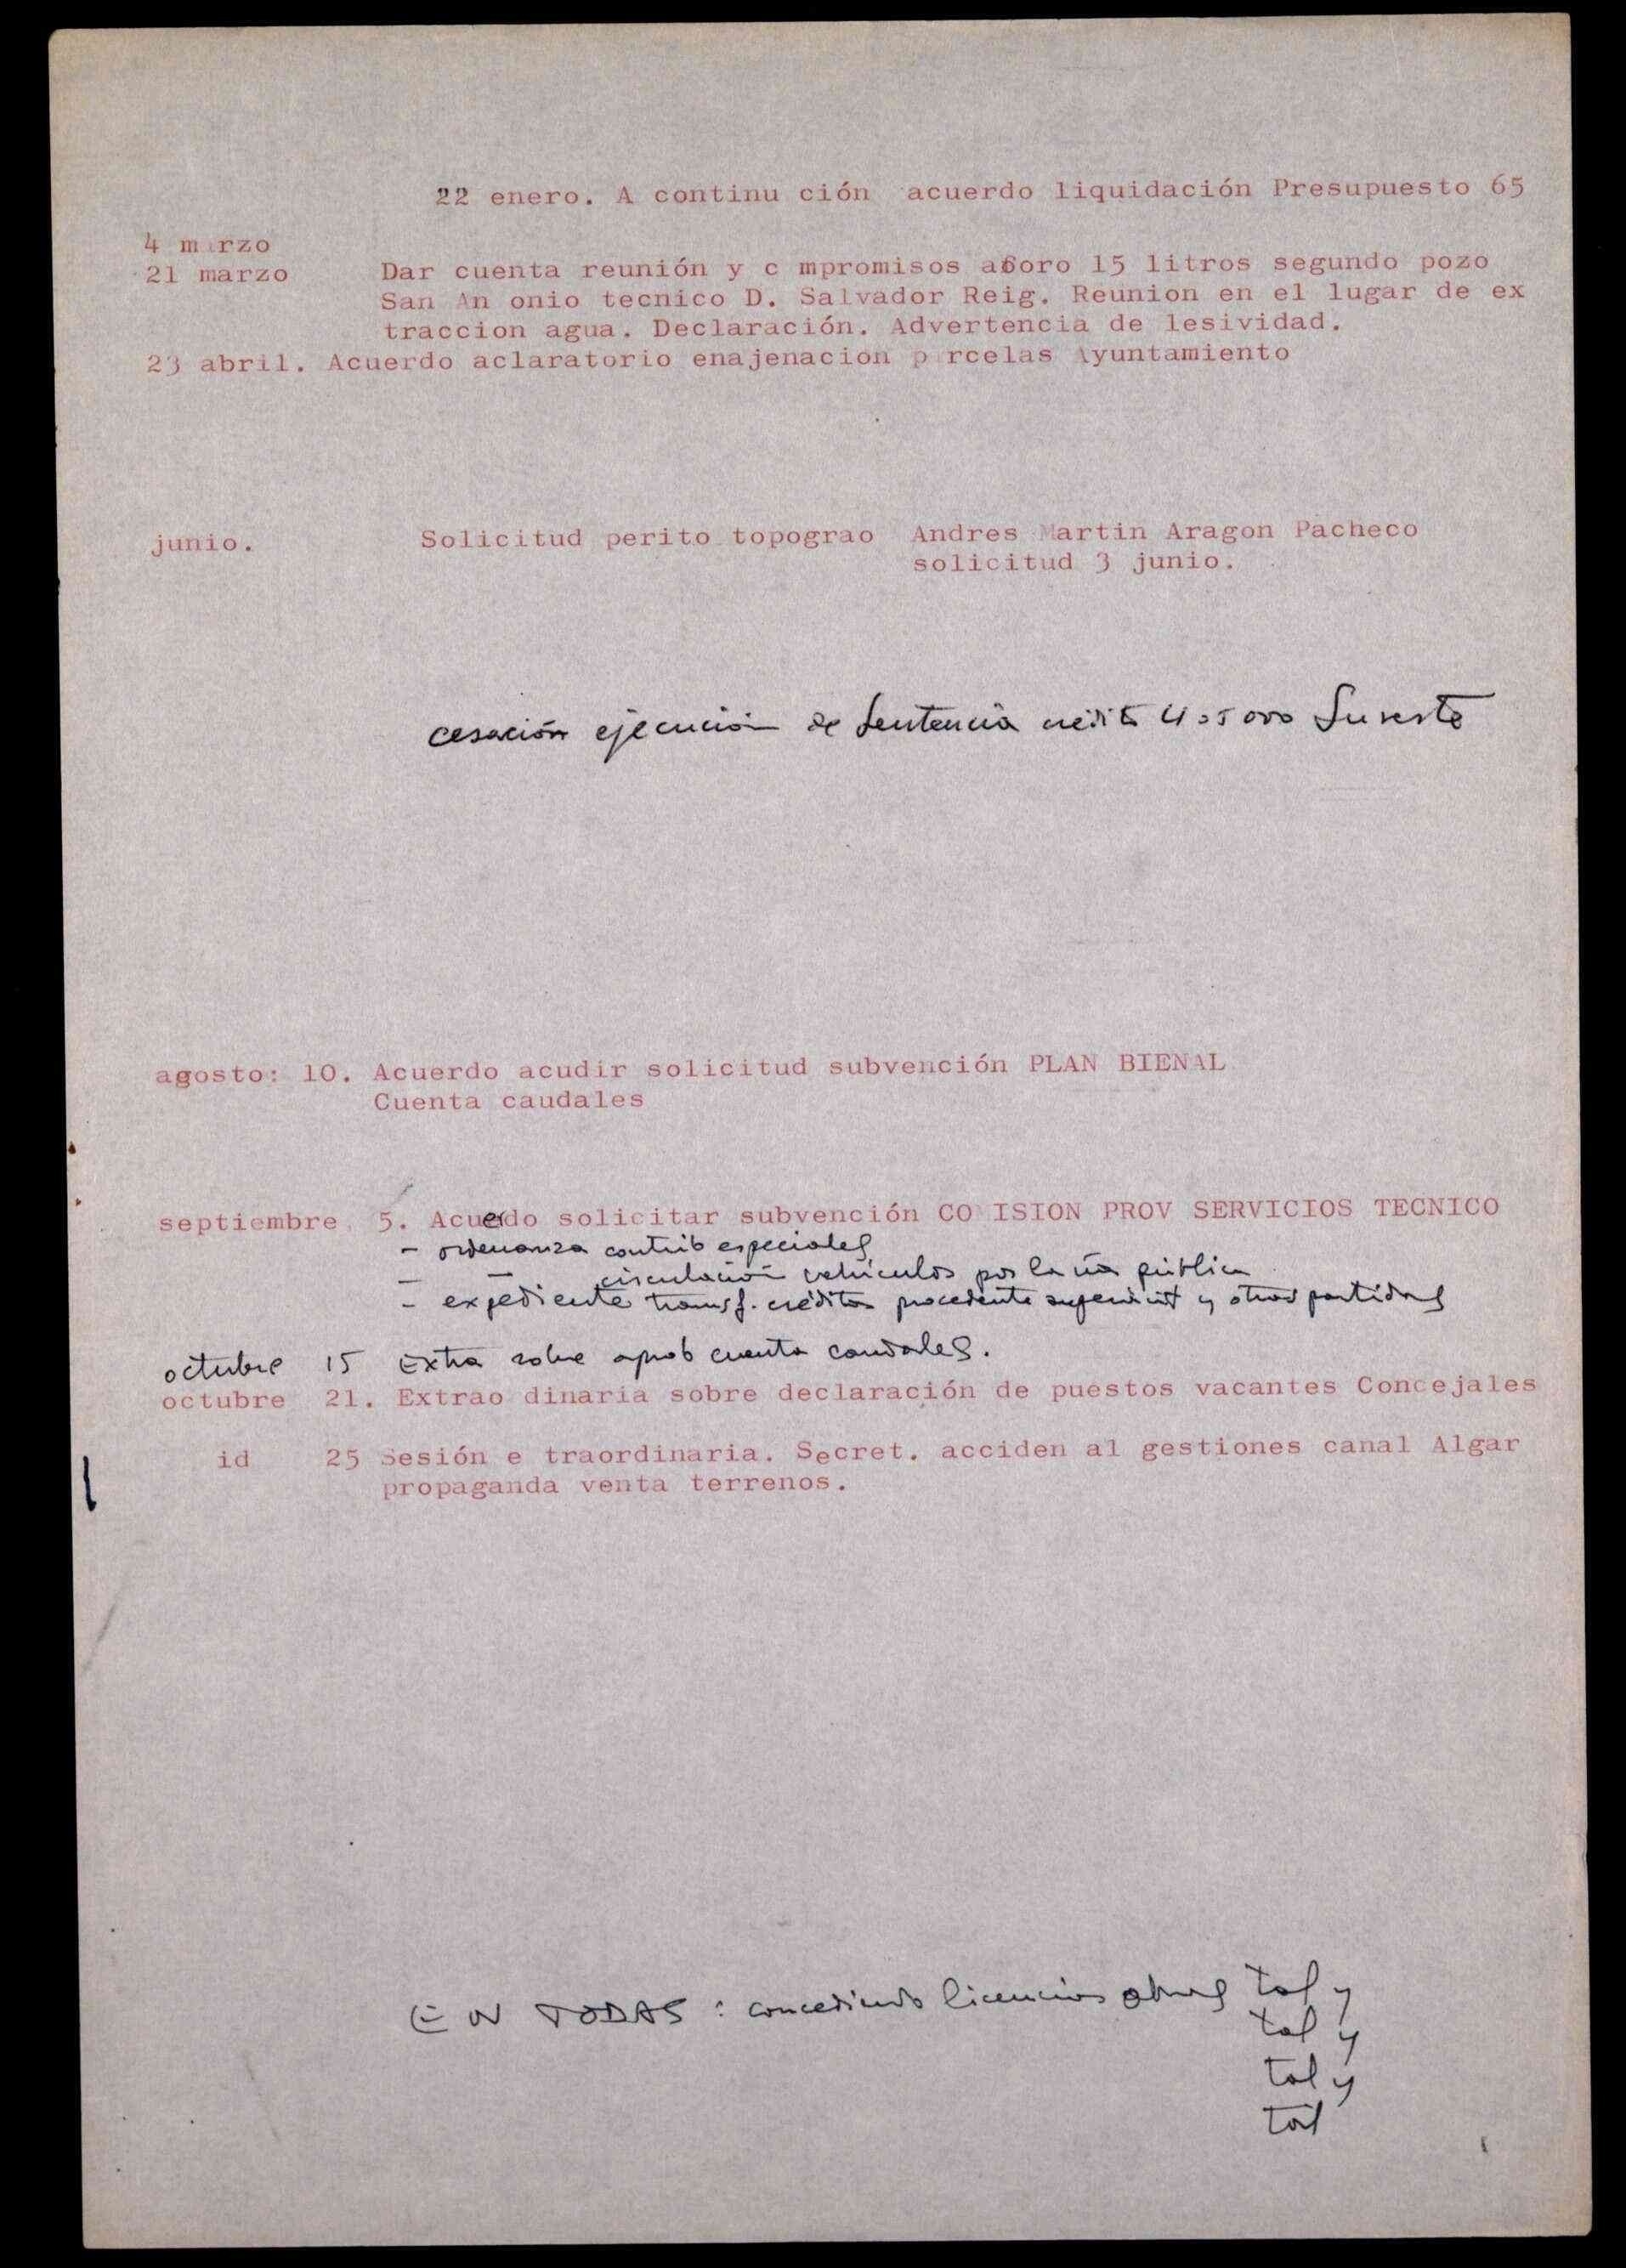 22 enero. A continu ción acuerdo liquidación Presupuesto 65
4 marzo
21 marzo Dar cuenta reunión y c mpromisos aforo 15 litros segundo pozo
San An onio tecnico D. Salvador Reig. Reunion en el lugar de ex
traccion agua. Declaración. Advertencia de lesividad.
23 abril. Acuerdo aclaratorio enajenacion parcelas Ayuntamiento
junio. Solicitud perito topograo Andres Martin Aragon Pacheco
solicitud 3 junio.
cesación ejecución de sentencia crédito 405000 Sureste
agosto: 10. Acuerdo acudir solicitud subvención PLAN BIENAL
Cuenta caudales
septiembre 5. Acuerdo solicitar subvención CO ISION PROV SERVICIOS TECNICO
- ordenanza contrib especiales
- — circulación vehículos por la vía pública
- expediente transf. créditos procedente superávit y otras partidas
octubre 15 Extra sobre aprob cuenta caudales.
octubre 21. Extrao dinaria sobre declaración de puestos vacantes Concejales
id 25 Sesión e traordinaria. Secret. acciden al gestiones canal Algar
propaganda venta terrenos.
EN TODAS: concediendo licencias obras tal y
tal y
tal y
tal